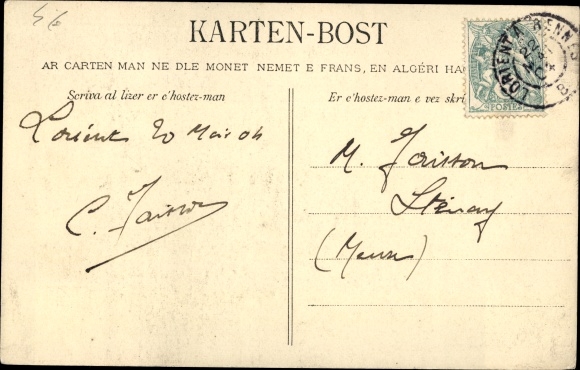 56
KARTEN-BOST
AR CARTEN MAN NE DLE MONET NEMET E FRANS, EN ALGÉRI HA
Scriva al lizer er c'hostez-man
Er c'hostez-man e vez skri
Lorient 20 Mai 04
C. Jaisson
M. Jaisson
Sténay
(Meuse)
LORIENT A RENNES
POSTES